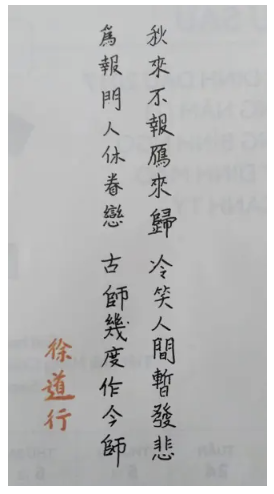 秋來不報鴈來歸 冷笑人間暫發悲
爲報門人休眷戀 古師幾度作今師
徐道行